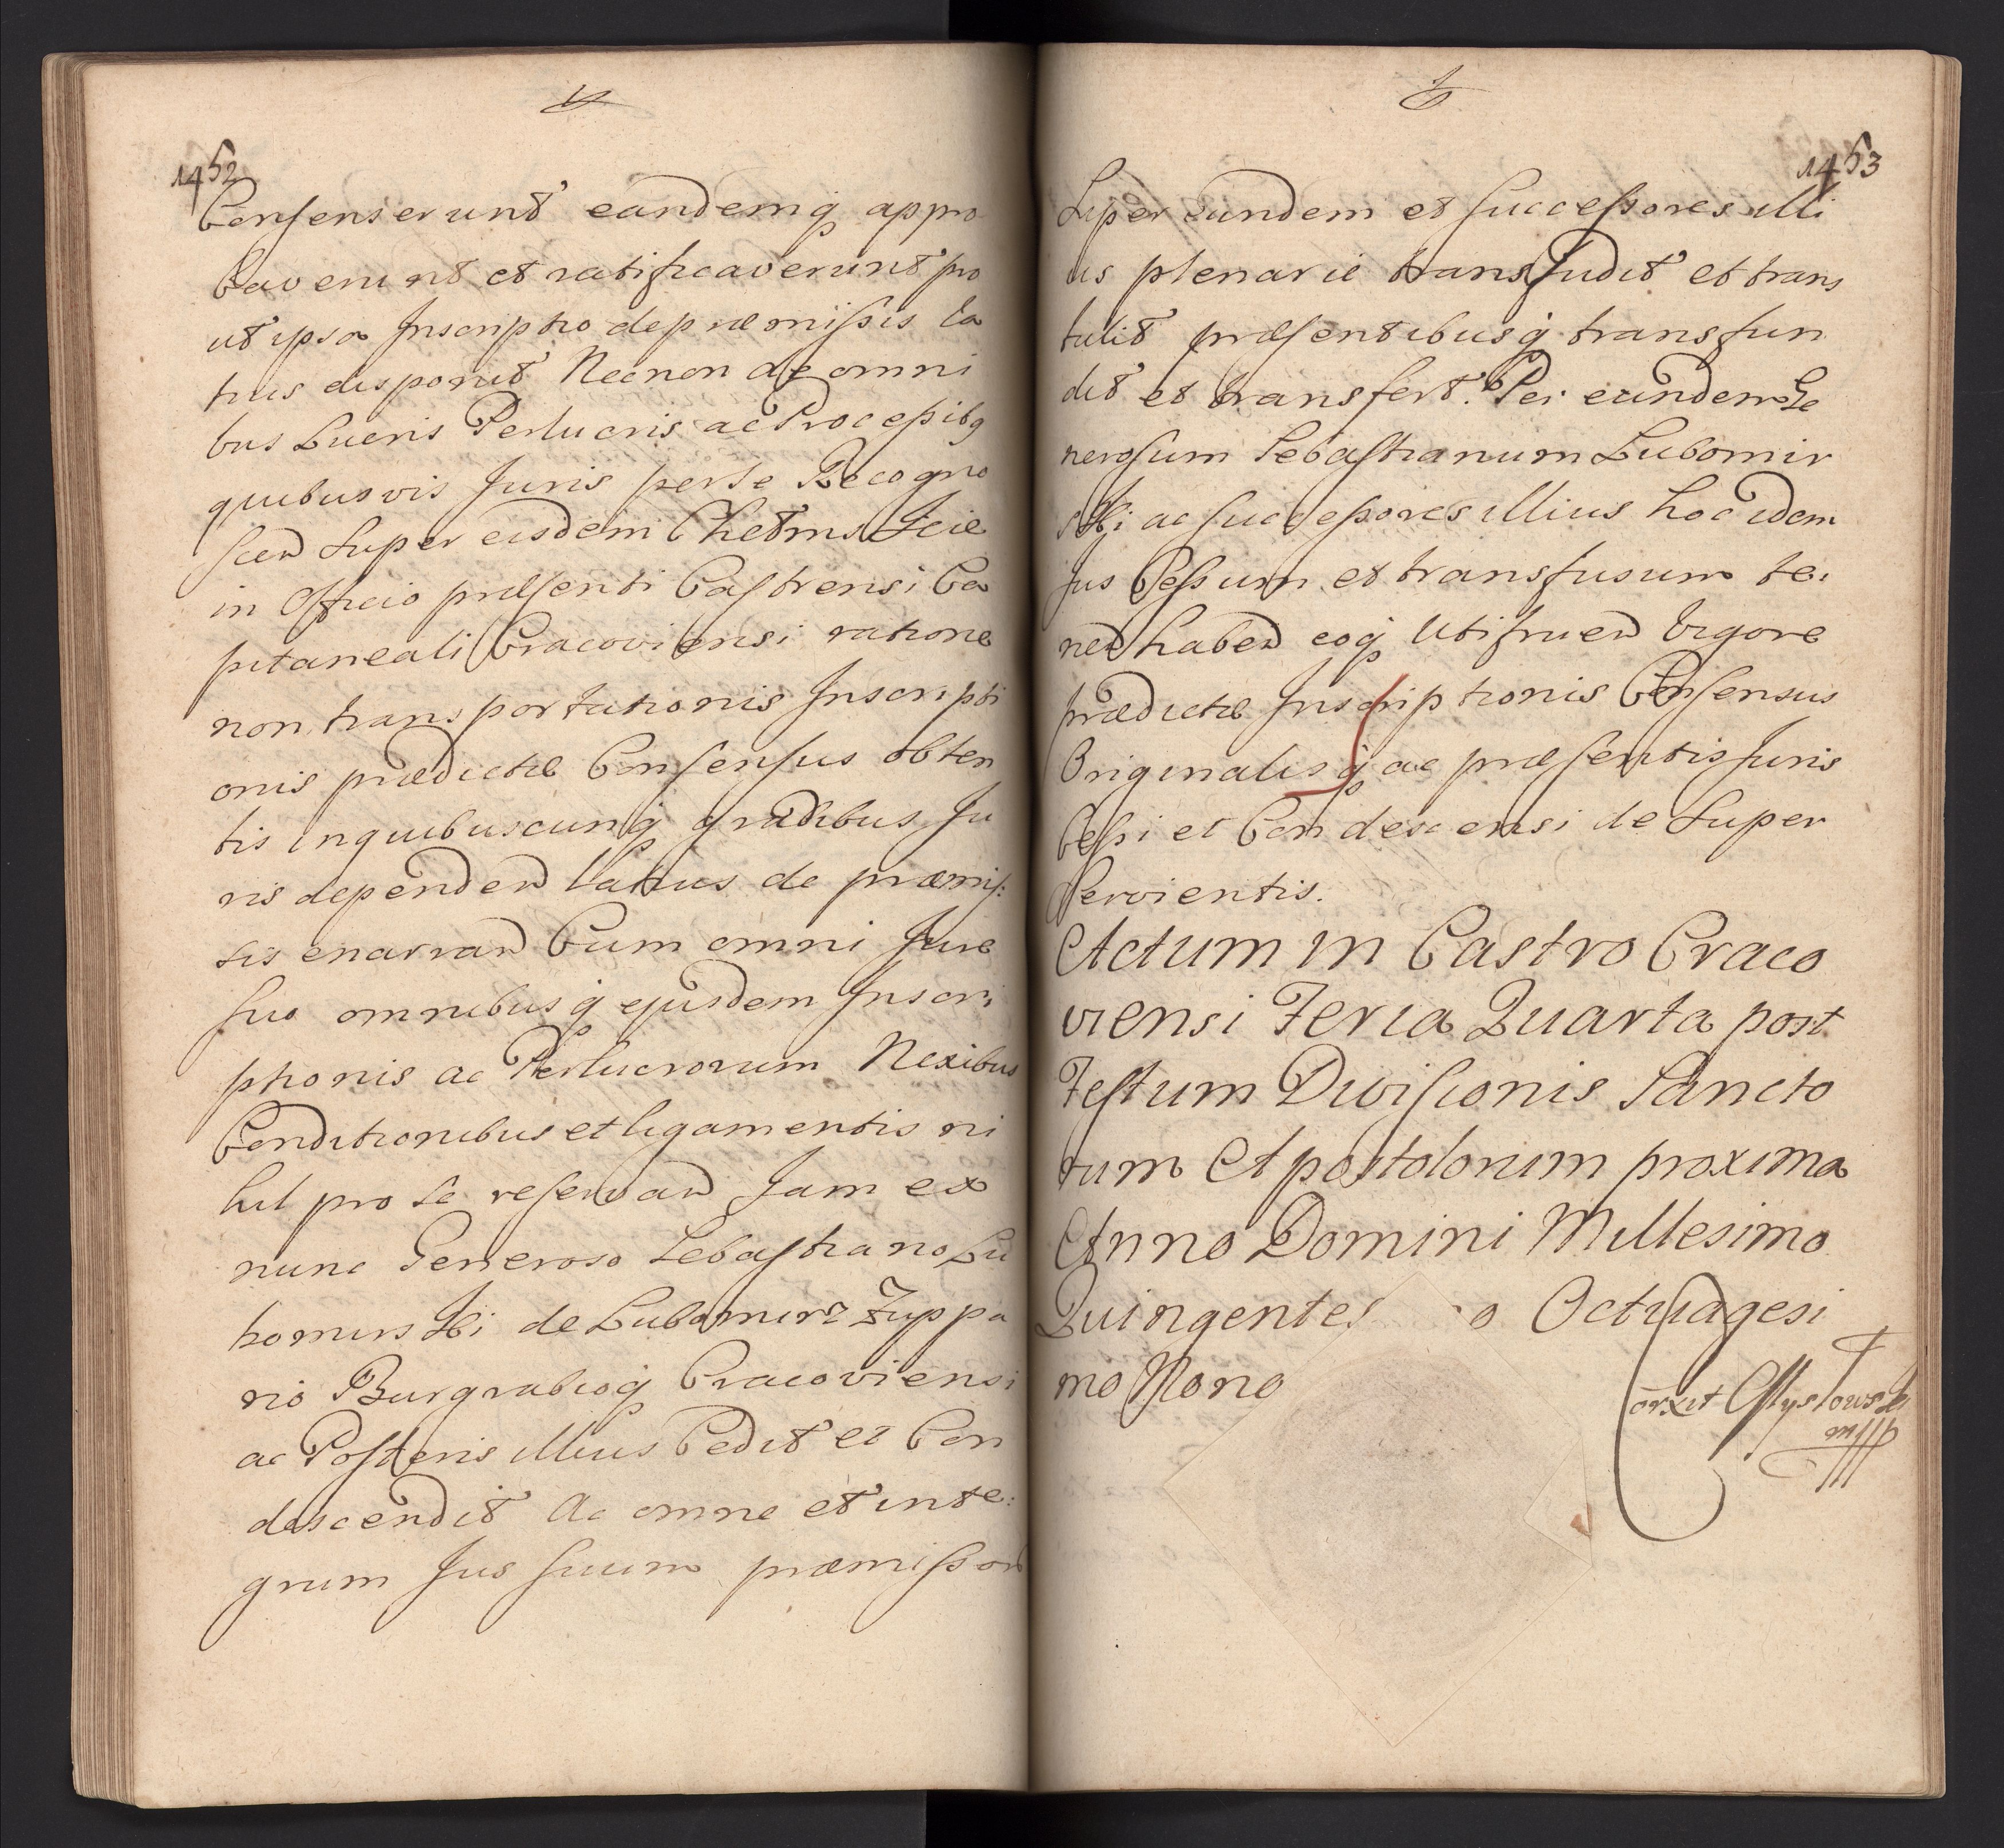 1452
Consenserunt eandemq appro
baverunt et ratificaverunt pro
ut ipsa Inscriptio de præmissis la
tius disponit Necnon de omni
bus Lucris Perlucris ac Processibq
quibusvis Juris per se Recogno
scen super eisdem Chelms
in Officio præsenti Castrensi Ca
pitaneali Cracoviensi ratione
non transportationis Inscripti
onis prædictæ Consensus obten
tis inquibuscunq gradibus Ju
ris dependen latius de præmis:
sis enarran Cum omni Jure
suo omnibusq ejusdem Inscri
ptionis ac Perlucrorum Nexibus
Conditionibus et ligamentis ni
hil pro se reservan Jam ex
nunc Generoso Sebastiano Lu
bomirski de Lubomirz Zuppa
rio Burgrabioq Cracoviensi
ac Posteris illius Cedit et Con
descendit Ac omne et inte:
grum Jus suum præmissor
1453
Super eundem et successores illi
us plenarie transfudit et trans
tulit præsentibusq transfun
dit et transfert. Per eundem Ge
nerosum Sebastianum Lubomir
ski ac successores illius hoc idem
Jus Cessum et transfusum te:
nen haben eoq Utifruen Vigore
prædictæ Inscriptionis Consensus
Originalisq ac præsentis Juris
Cessi et Condescensi de super
servientis.
Actum in Castro Craco
viensi Feria Quarta post
Festum Divisionis Sancto
rum Apostolorum proxima
Anno Domini Millesimo
Quingentes o Octuagesi
mo Nono